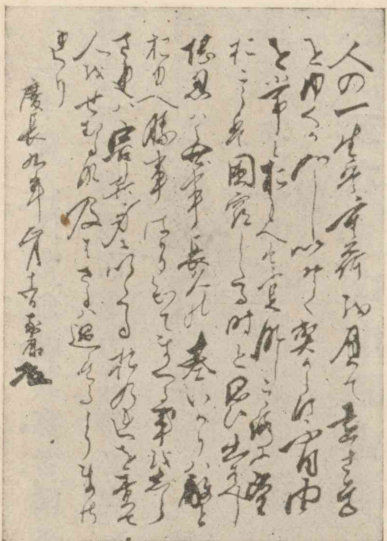 人の一生は重荷を負て遠き道
をゆくか如しいそくへからす不自由
を常とおもへは不足なしこゝろに望
おこらは困窮したる時を思ひ出すへし
堪忍は無事長久の基いかりは敵と
おもへ勝事はかり知てまくる事をしら
されは害其身にいたるおのれを責て
人をせむるな及はさるは過たるよりまさ
れり
慶長九年 月十五日 家康